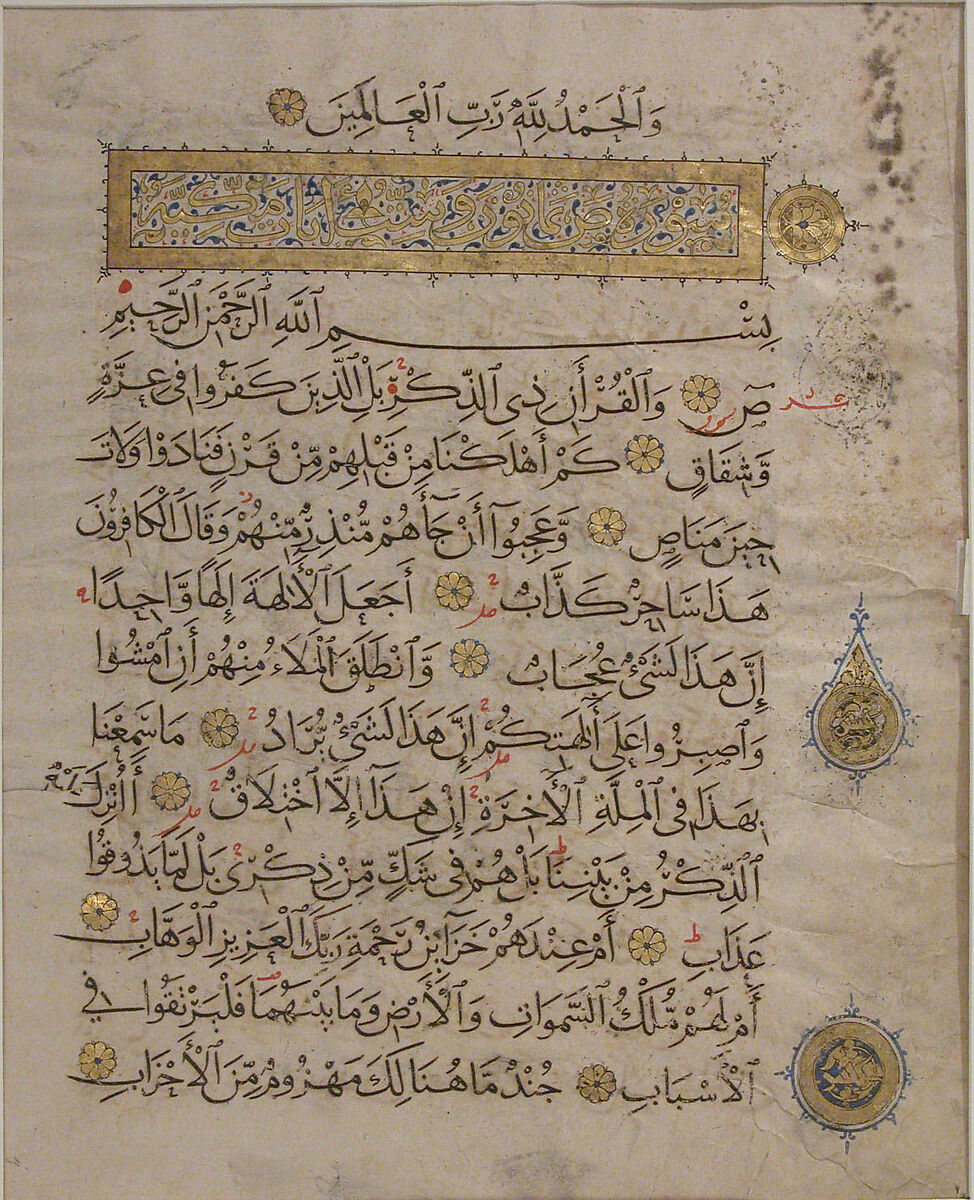 وَٱلْحَمْدُ لِلَّهِ رَبِّ ٱلْعَالَمِينَ
سورة ص ثمانون وست آيات مكية
بِسْمِ ٱللَّهِ ٱلرَّحْمَٰنِ ٱلرَّحِيمِ
صٓ وَٱلْقُرْأٰنِ ذِى ٱلذِّكْرِ بَلِ ٱلَّذِينَ كَفَرُوا فِى عِزَّةٍ
وَّشِقَاقٍ كَمْ أَهْلَكْنَا مِنْ قَبْلِهِمْ مِّنْ قَرْنٍ فَنَادَوْا وَلَاتَ
حِينَ مَنَاصٍ وَّعَجِبُوٓا أَنْ جَآءَهُمْ مُّنْذِرٌ مِّنْهُمْ وَقَالَ ٱلْكَافِرُونَ
هَذَا سَاحِرٌ كَذَّابٌ أَجَعَلَ ٱلْأٰلِهَةَ إِلَهًا وَّاحِدًا
إِنَّ هَذَا لَشَىْءٌ عُجَابٌ وَّٱنْطَلَقَ ٱلْمَلَأُ مِنْهُمْ أَنِ ٱمْشُوا
وَٱصْبِرُوا عَلَى أٰلِهَتِكُمْ إِنَّ هَذَا لَشَىْءٌ يُّرَادُ مَا سَمِعْنَا
بِهَذَا فِى ٱلْمِلَّةِ ٱلْأٰخِرَةِ إِنْ هَذَآ إِلَّا ٱخْتِلَاقٌ أَأُنْزِلَ
ٱلذِّكْرُ مِنْ بَيْنِنَا بَلْ هُمْ فِى شَكٍّ مِّنْ ذِكْرِى بَلْ لَمَّا يَذُوقُوا
عَذَابِ أَمْ عِنْدَهُمْ خَزَآئِنُ رَحْمَةِ رَبِّكَ ٱلْعَزِيزِ ٱلْوَهَّابِ
أَمْ لَهُمْ مُّلْكُ ٱلسَّمَوَاتِ وَٱلْأَرْضِ وَمَا بَيْنَهُمَا فَلْيَرْتَقُوا فِى
ٱلْأَسْبَابِ جُنْدٌ مَّا هُنَالِكَ مَهْزُومٌ مِّنَ ٱلْأَحْزَابِ